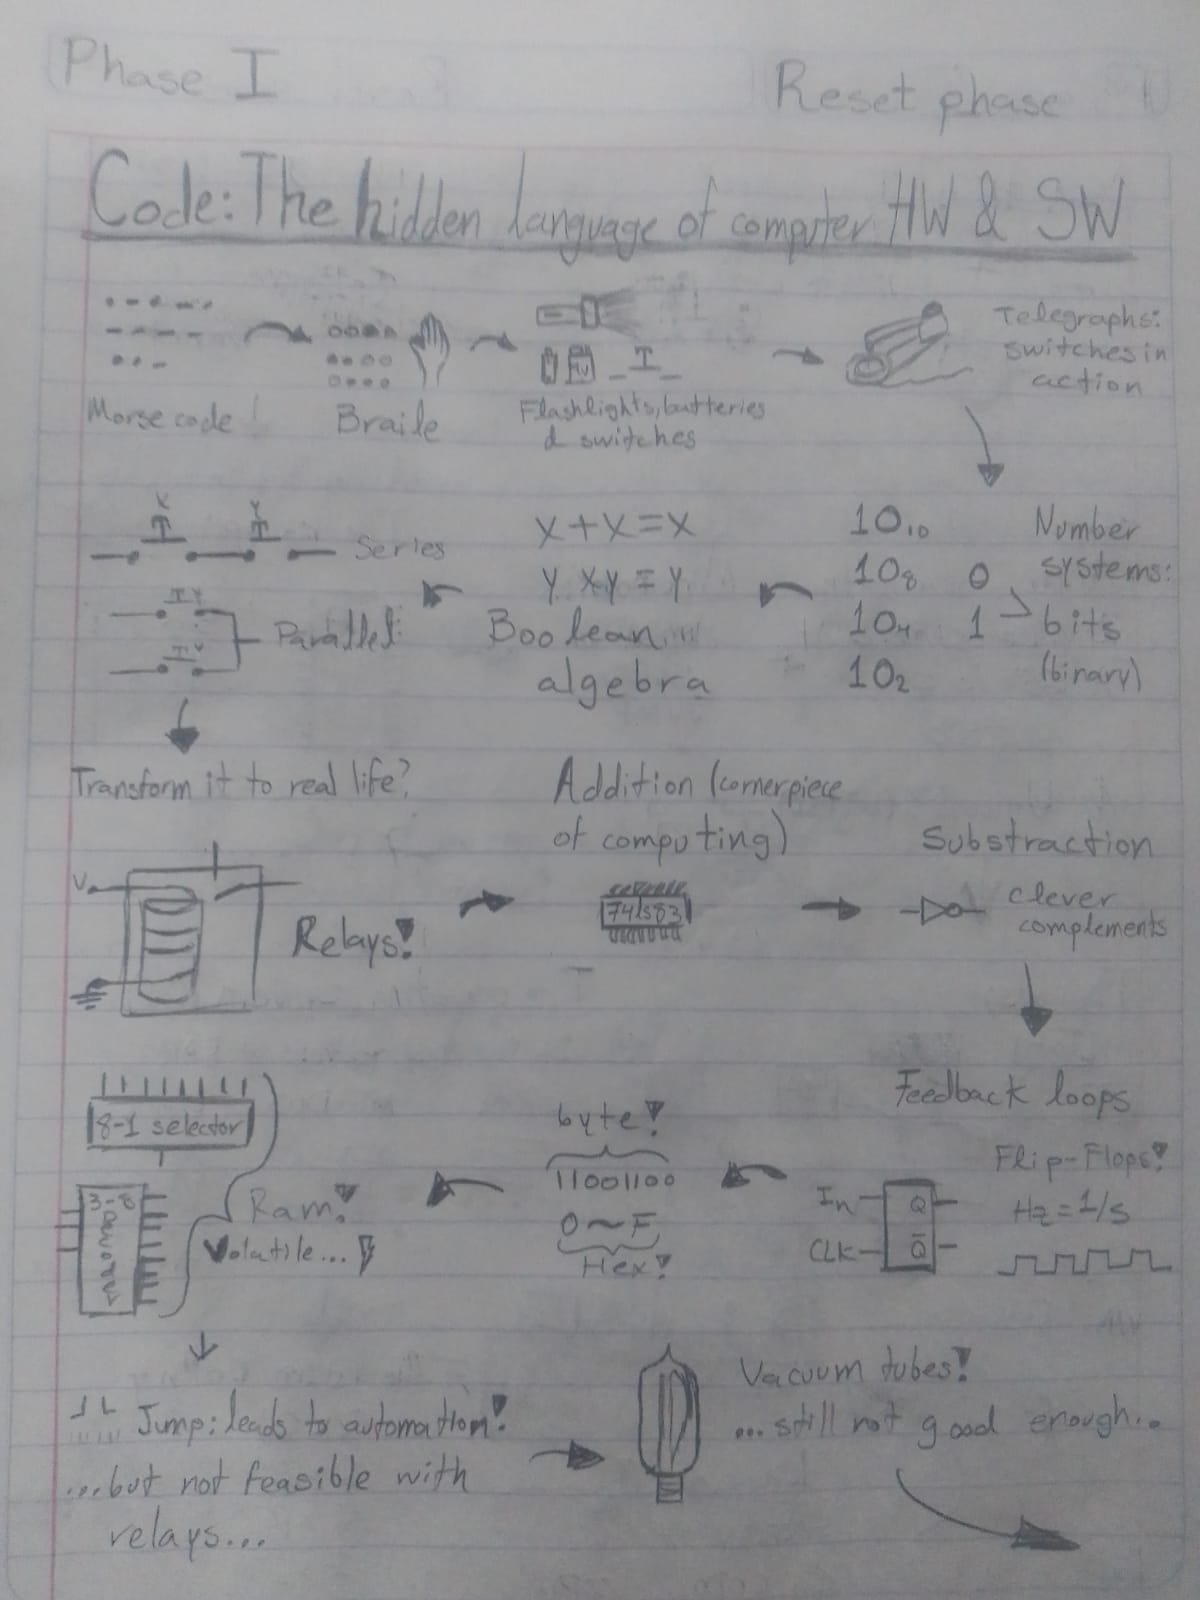 Phase I
Reset phase
Code: The hidden language of computer HW & SW
Morse code!
Braile
Flashlights, batteries
& switches
Telegraphs:
switches in
action
Number
systems:
bits
(binary)
0
1
10₁₀
10₈
10₄
10₂
X+X=X
Boolean
algebra
X Y
Series
Parallel
Transform it to real life?
V
Relays!
Addition (cornerpiece
of computing)
74ls83
Substraction
clever
complements
Feedback loops
Flip-Flops!
Hz=1/s
In
CLK
Q
Q̅
byte!
11001100
0~F
Hex!
8-1 selector
3-8
Ram!
Volatile...
Jump: leads to automation!
...but not feasible with
relays...
Vacuum tubes!
...still not good enough...